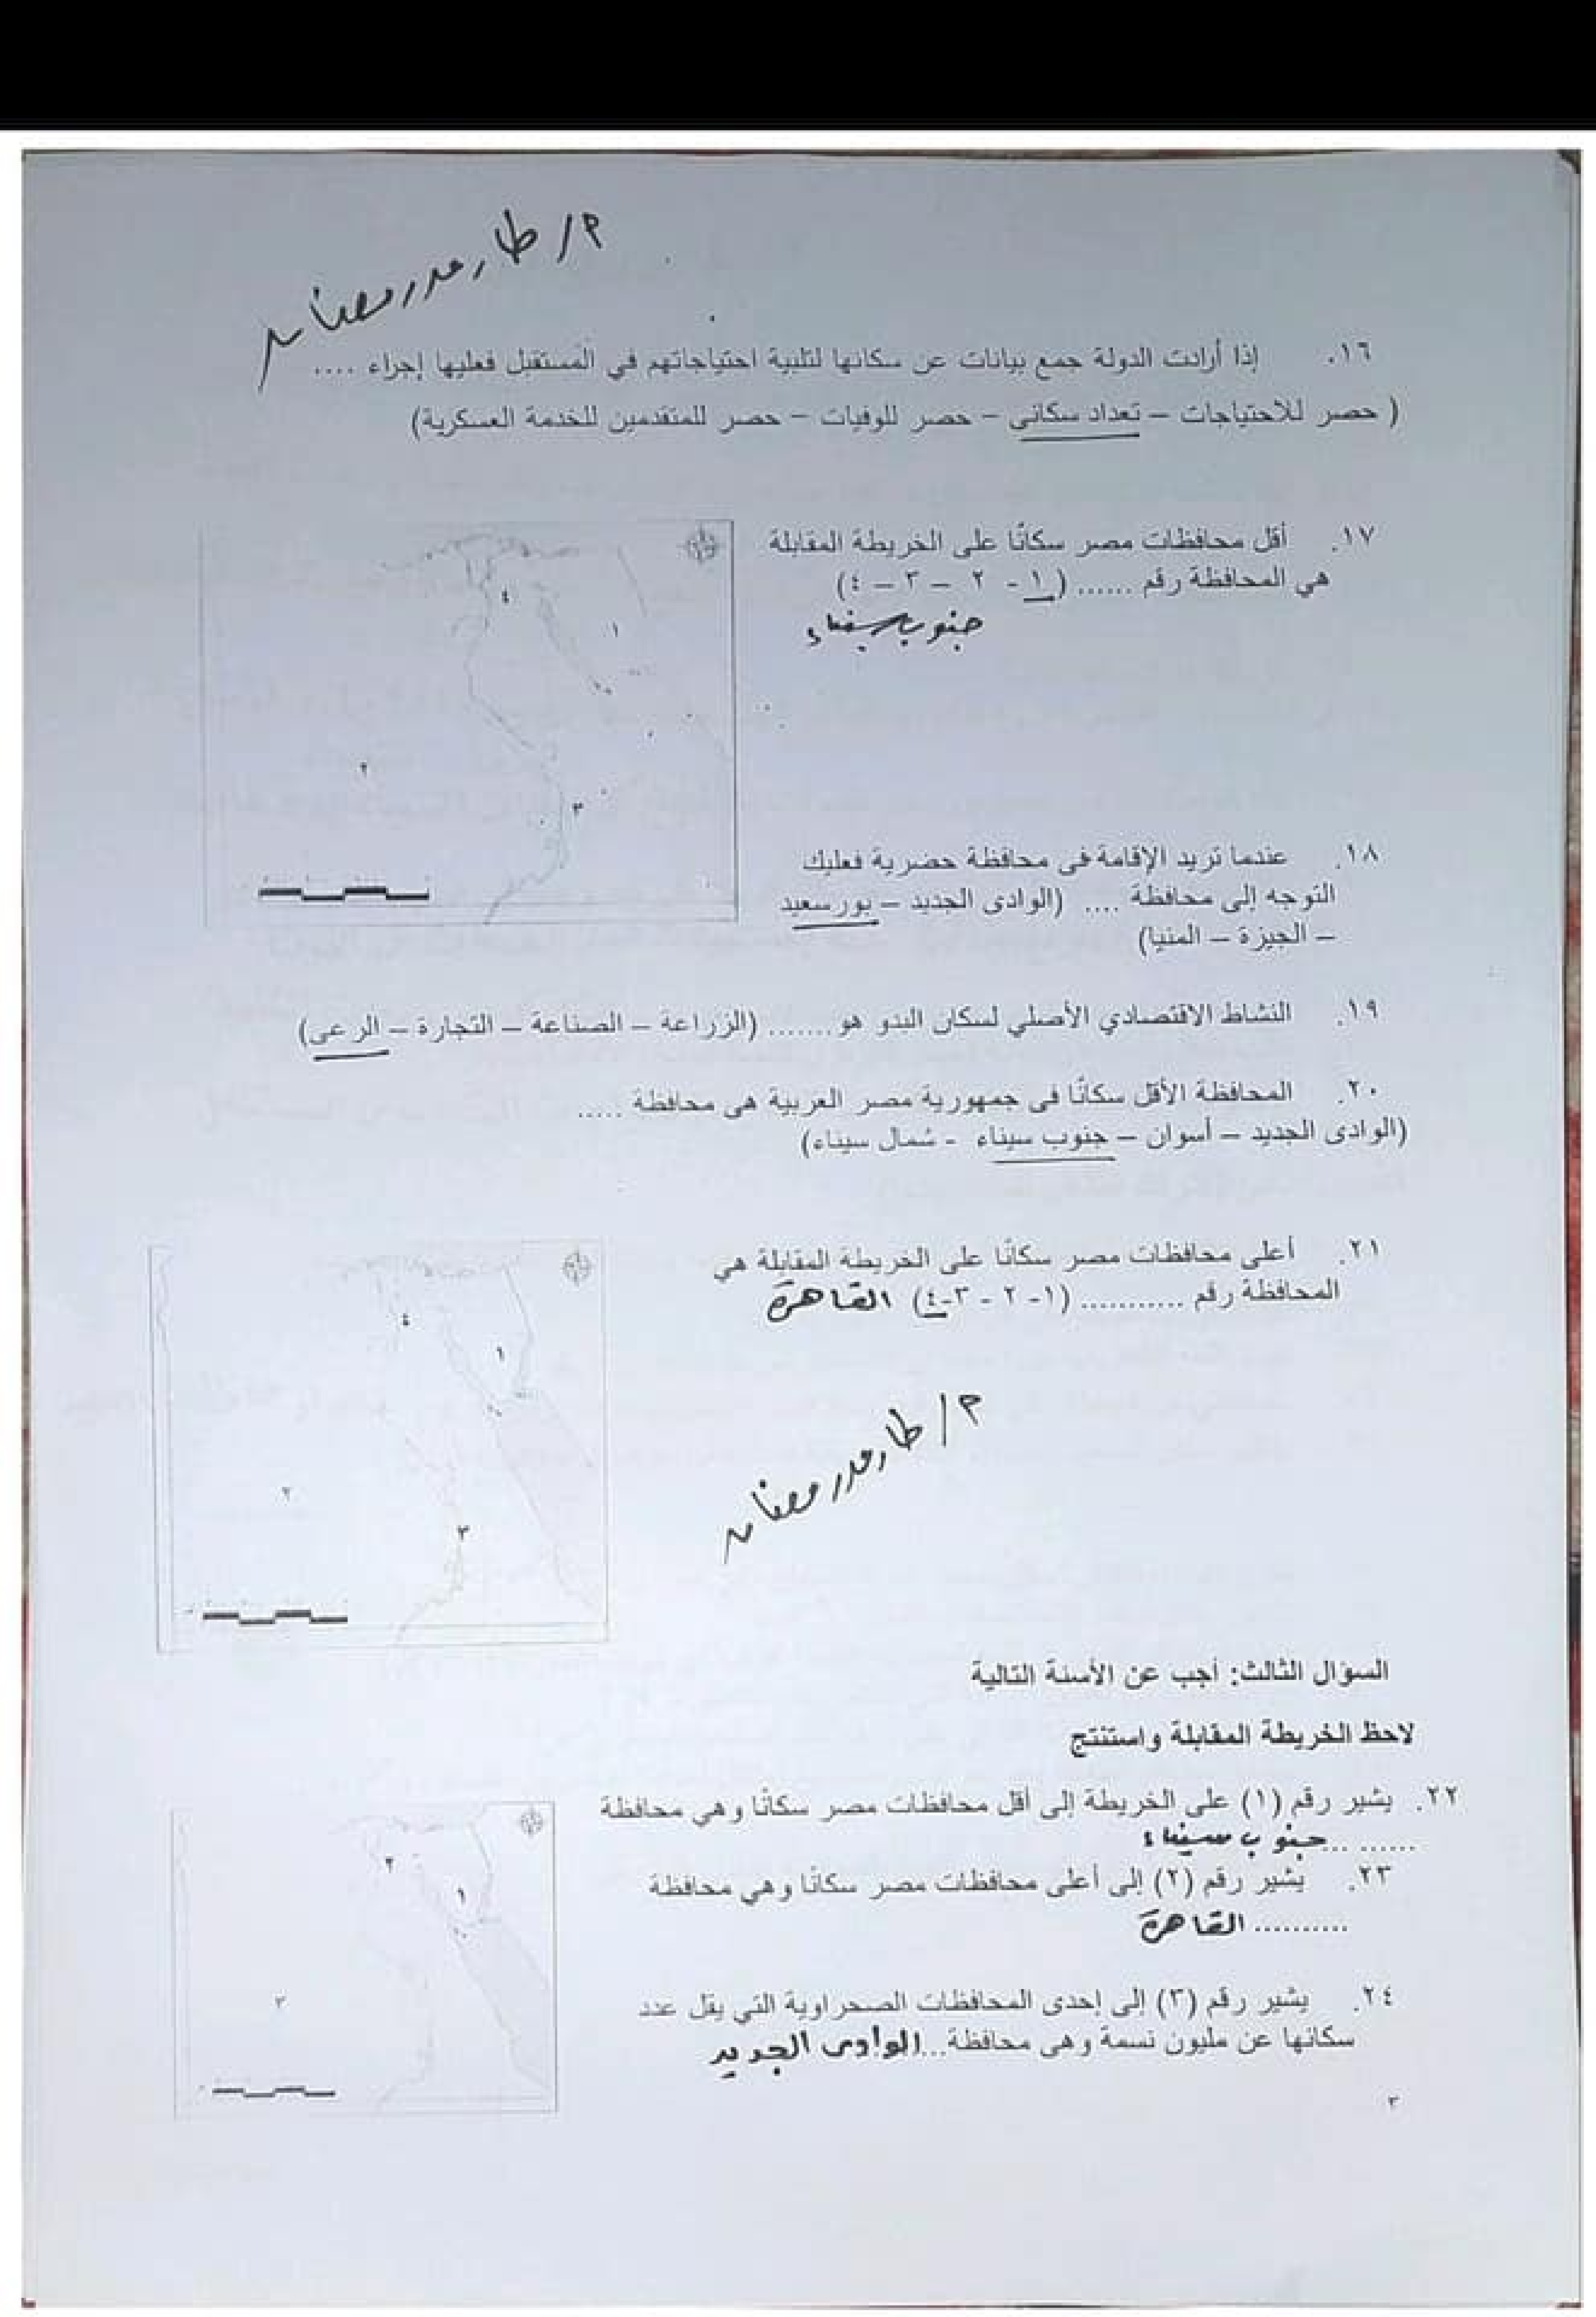 م/ طارق
١٦. إذا أرادت الدولة جمع بيانات عن سكانها لتلبية احتياجاتهم في المستقبل فعليها إجراء ....
( حصر للاحتياجات – تعداد سكانى – حصر للوفيات – حصر للمتقدمين للخدمة العسكرية)
١٧. أقل محافظات مصر سكانًا على الخريطة المقابلة
هي المحافظة رقم ...... (١ - ٢ – ٣ – ٤)
جنوب سيناء
٤
١
٢
٣
١٨. عندما تريد الإقامة فى محافظة حضرية فعليك
التوجه إلى محافظة .... (الوادى الجديد – بورسعيد
– الجيزة – المنيا)
١٩. النشاط الاقتصادي الأصلي لسكان البدو هو ....... (الزراعة – الصناعة – التجارة – الرعى)
٢٠. المحافظة الأقل سكانًا فى جمهورية مصر العربية هى محافظة .....
(الوادى الجديد – أسوان – جنوب سيناء - شمال سيناء)
٢١. أعلى محافظات مصر سكانًا على الخريطة المقابلة هي
المحافظة رقم ........... (١- ٢ - ٣-٤) القاهرة
٤
١
٢
٣
م/ طارق
السؤال الثالث: أجب عن الأسئة التالية
لاحظ الخريطة المقابلة واستنتج
٢٢. يشير رقم (١) على الخريطة إلى أقل محافظات مصر سكانًا وهي محافظة
...... ...جنوب سيناء
٢٣. يشير رقم (٢) إلى أعلى محافظات مصر سكانًا وهي محافظة
.......... القاهرة
٢
١
٣
٢٤. يشير رقم (٣) إلى إحدى المحافظات الصحراوية التي يقل عدد
سكانها عن مليون نسمة وهى محافظة...الوادى الجديد
٣